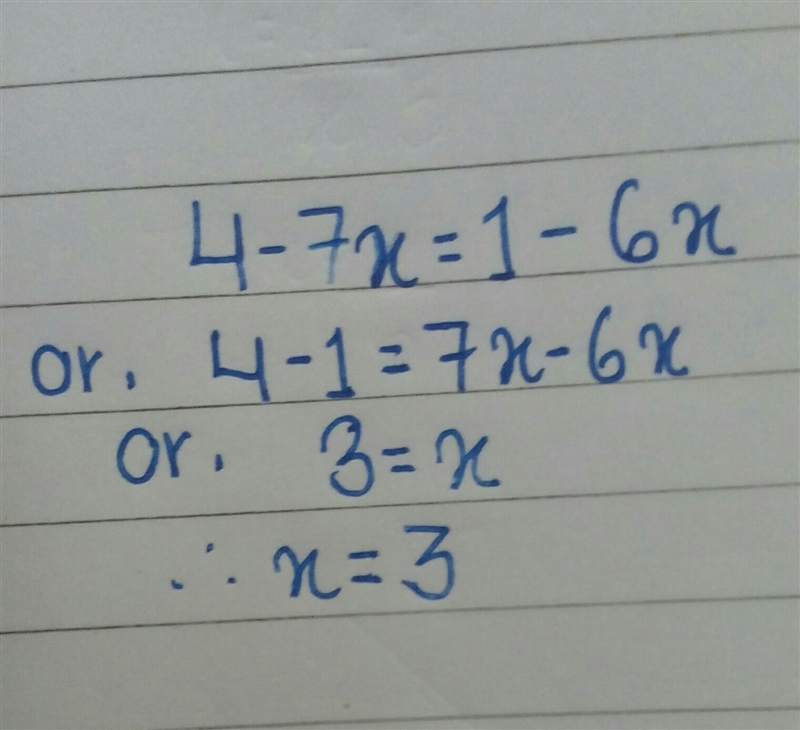 4-7x=1-6x
or, 4-1=7x-6x
or, 3=x
∴ x=3